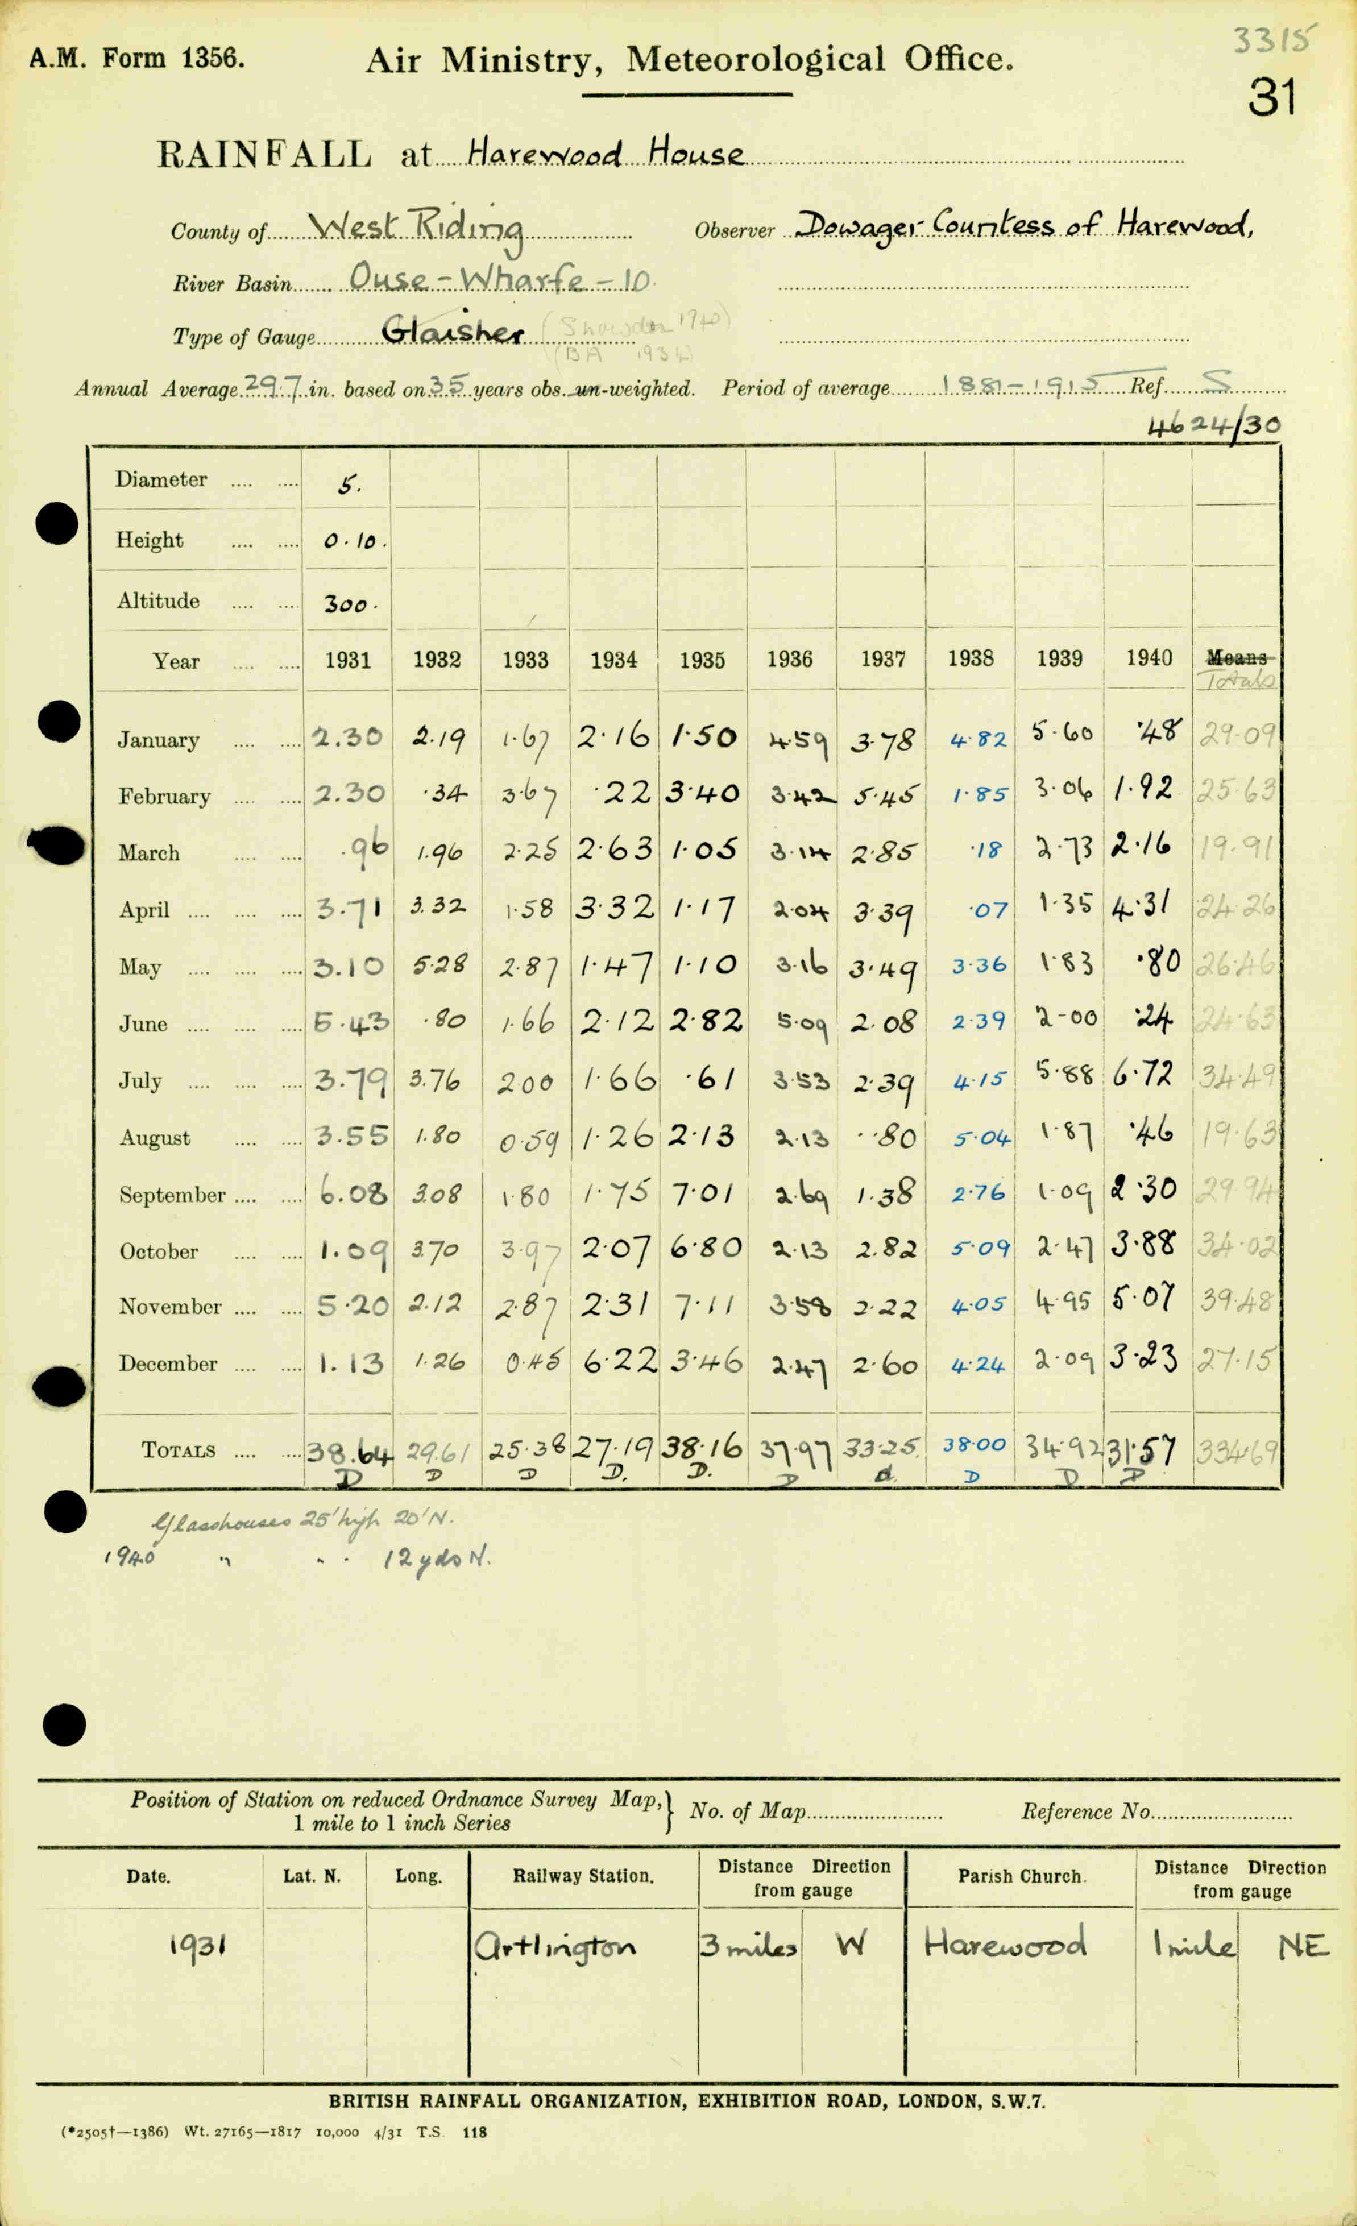 3315
A.M. Form 1356. Air Ministry, Meteorological Office.
31
RAINFALL at Harewood House
County of West Riding Observer Dowager Countess of Harewood,
River Basin Ouse - Wharfe - 10.
Type of Gauge Glaisher (Snowdon 1940)
(BA
Annual Average 29.7 in. based on 35 years obs. un-weighted. Period of average 1881-1915 Ref. S
4624/30
Diameter 5.
Height 0.10.
Altitude 300.
Year 1931 1932 1933 1934 1935 1936 1937 1938 1939 1940 Means
Totals
January 2.30 2.19 1.67 2.16 1.50 4.59 3.78 4.82 5.60 .48 29.09
February 2.30 .34 3.67 .22 3.40 3.42 5.45 1.85 3.06 1.92 25.63
March .96 1.96 2.25 2.63 1.05 3.14 2.85 .18 2.73 2.16 19.91
April 3.71 3.32 1.58 3.32 1.17 2.04 3.39 .07 1.35 4.31 24.26
May 3.10 5.28 2.87 1.47 1.10 3.16 3.49 3.36 1.83 .80 26.46
June 5.43 .80 1.66 2.12 2.82 5.09 2.08 2.39 2.00 .24 24.63
July 3.79 3.76 2.00 1.66 .61 3.53 2.39 4.15 5.88 6.72 34.49
August 3.55 1.80 0.59 1.26 2.13 2.13 .80 5.04 1.87 .46 19.63
September 6.08 3.08 1.80 1.75 7.01 2.69 1.38 2.76 1.09 2.30 29.94
October 1.09 3.70 3.97 2.07 6.80 2.13 2.82 5.09 2.47 3.88 34.02
November 5.20 2.12 2.87 2.31 7.11 3.58 2.22 4.05 4.95 5.07 39.48
December 1.13 1.26 0.45 6.22 3.46 2.47 2.60 4.24 2.09 3.23 27.15
TOTALS 38.64 29.61 25.38 27.19 38.16 37.97 33.25 38.00 34.92 31.57 334.69
D D D D. D. D d. D D D
Glasshouses 25' high 20' N.
1940 " " 12 yds N.
Position of Station on reduced Ordnance Survey Map, } No. of Map Reference No.
1 mile to 1 inch Series
Date. Lat. N. Long. Railway Station. Distance Direction from gauge Parish Church. Distance Direction from gauge
1931 Arthington 3 miles W Harewood 1 mile NE
BRITISH RAINFALL ORGANIZATION, EXHIBITION ROAD, LONDON, S.W.7.
(*2505†—1386) Wt. 27165—1817 10,000 4/31 T.S. 118